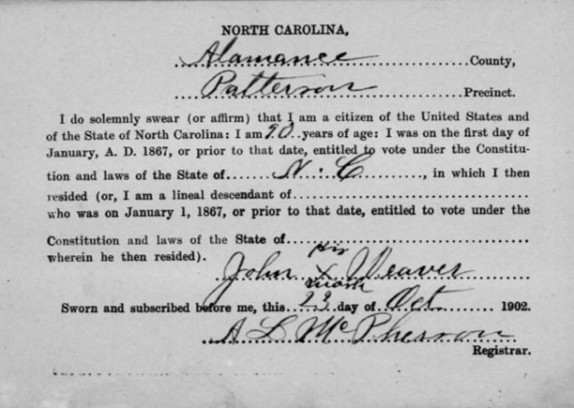 NORTH CAROLINA,
Alamance County,
Patterson Precinct.
I do solemnly swear (or affirm) that I am a citizen of the United States and
of the State of North Carolina: I am 90 years of age: I was on the first day of
January, A. D. 1867, or prior to that date, entitled to vote under the Constitu-
tion and laws of the State of N. C, in which I then
resided (or, I am a lineal descendant of
who was on January 1, 1867, or prior to that date, entitled to vote under the
Constitution and laws of the State of
wherein he then resided).
his
John X Weaver
mark
Sworn and subscribed before me, this 29 day of Oct 1902.
A L McPherson
Registrar.